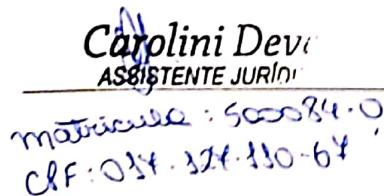 Carolini Dev
ASSISTENTE JURÍDI
matrícula: 500084-0
CPF: 017.127.110-67